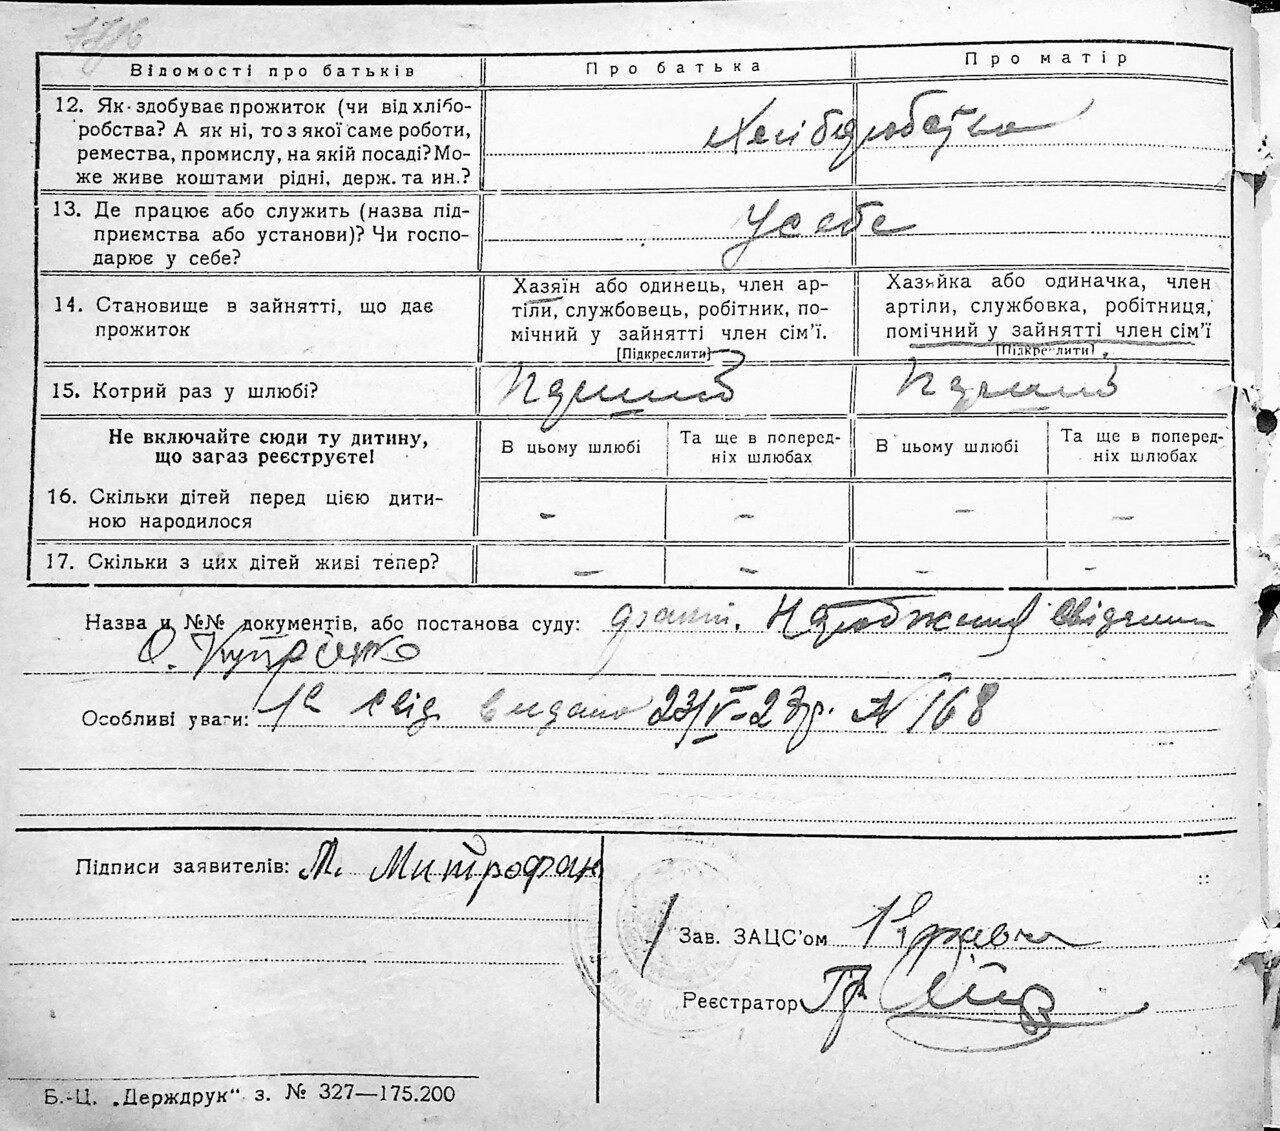 Відомості про батьків
Про батька
Про матір
12. Як здобуває прожиток (чи від хлібо-
робства? А як ні, то з якої саме роботи,
ремества, промислу, на якій посаді? Мо-
же живе коштами рідні, держ. та ин.?
Хліборобство
13. Де працює або служить (назва під-
приємства або установи)? Чи госпо-
дарює у себе?
У себе
14. Становище в зайнятті, що дає
прожиток
Хазяїн або одинець, член ар-
тіли, службовець, робітник, по-
мічний у зайнятті член сім'ї.
[Підкреслити]
Хазяйка або одиначка, член
артіли, службовка, робітниця,
помічний у зайнятті член сім'ї
[Підкреслити]
15. Котрий раз у шлюбі?
Перший
Перший
Не включайте сюди ту дитину,
що загаз реєструєте!
В цьому шлюбі
Та ще в поперед-
ніх шлюбах
В цьому шлюбі
Та ще в поперед-
ніх шлюбах
16. Скільки дітей перед цією дити-
ною народилося
– – – –
17. Скільки з цих дітей живі тепер?
– – – –
Назва и №№ документів, або постанова суду:
О.
Особливі уваги: свід видано 23/V-27р. № 168
Підписи заявителів: М. Митрофан
Зав. ЗАЦС'ом
Реєстратор
Б.-Ц. „Держдрук" з. № 327—175.200